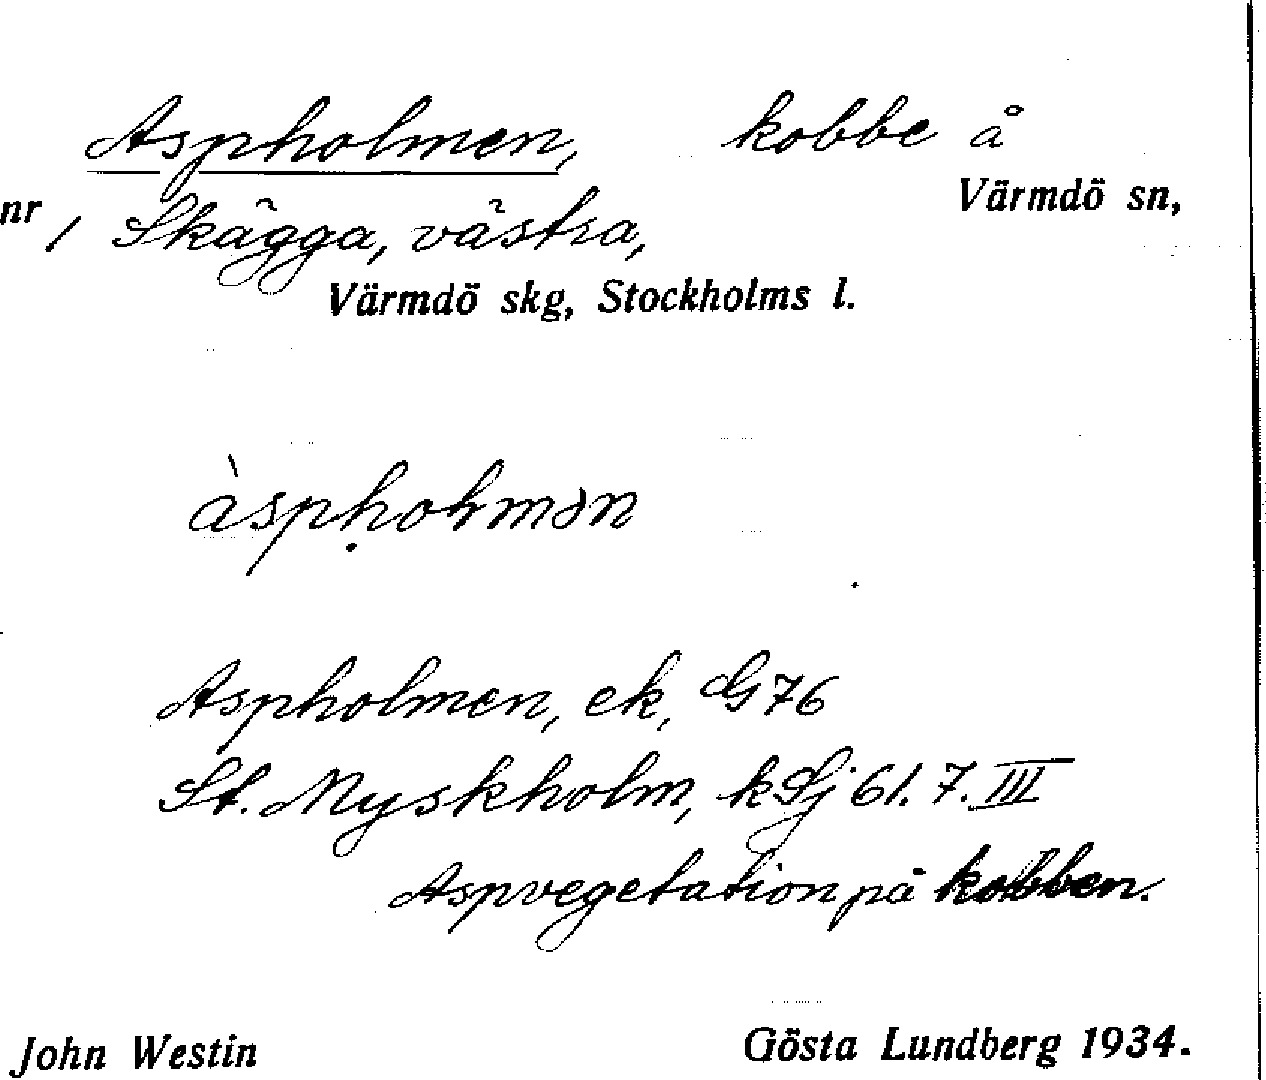 Aspholmen, kobbe å
Värmdö sn,
nr / Skägga, västra,
Värmdö skg, Stockholms l.
àspḥoɫmən
Aspholmen, ek, G76
St. Myskholm, kSj 61. 7. III
Aspvegetation på kobben.
John Westin Gösta Lundberg 1934.